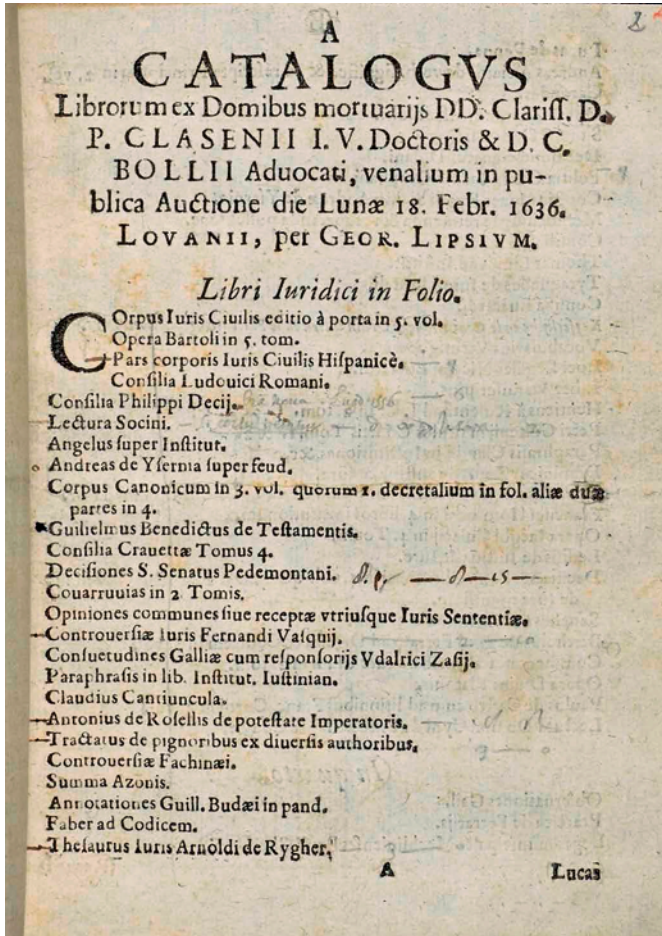 2
A
CATALOGVS
Librorum ex Domibus mortuarijs DD. Clariſſ. D.
P. CLASENII I. V. Doctoris & D. C.
BOLLII Aduocati, venalium in pu-
blica Auctione die Lunæ 18. Febr. 1636.
LOVANII, per GEOR. LIPSIVM.
Libri Iuridici in Folio.
COrpus Iuris Ciuilis editio à porta in 5. vol.
Opera Bartoli in 5. tom.
Pars corporis Iuris Ciuilis Hiſpanicè.
Conſilia Ludouici Romani.
Conſilia Philippi Decij.
Lectura Socini.
Angelus ſuper Inſtitut.
Andreas de Yſernia ſuper feud.
Corpus Canonicum in 3. vol. quorum 1. decretalium in fol. aliæ duæ
partes in 4.
Guilielmus Benedictus de Teſtamentis.
Conſilia Crauettæ Tomus 4.
Deciſiones S. Senatus Pedemontani.
Couarruuias in 2 Tomis.
Opiniones communes ſiue receptæ vtriuſque Iuris Sententiæ.
Controuerſiæ Iuris Fernandi Vaſquij.
Conſuetudines Galliæ cum reſponſorijs Vdalrici Zaſij.
Paraphraſis in lib. Inſtitut. Iuſtinian.
Claudius Cantiuncula.
Antonius de Roſellis de poteſtate Imperatoris.
Tractatus de pignoribus ex diuerſis authoribus.
Controuerſiæ Fachinæi.
Summa Azonis.
Annotationes Guill. Budæi in pand.
Faber ad Codicem.
Theſaurus Iuris Arnoldi de Rygher.
A Lucas